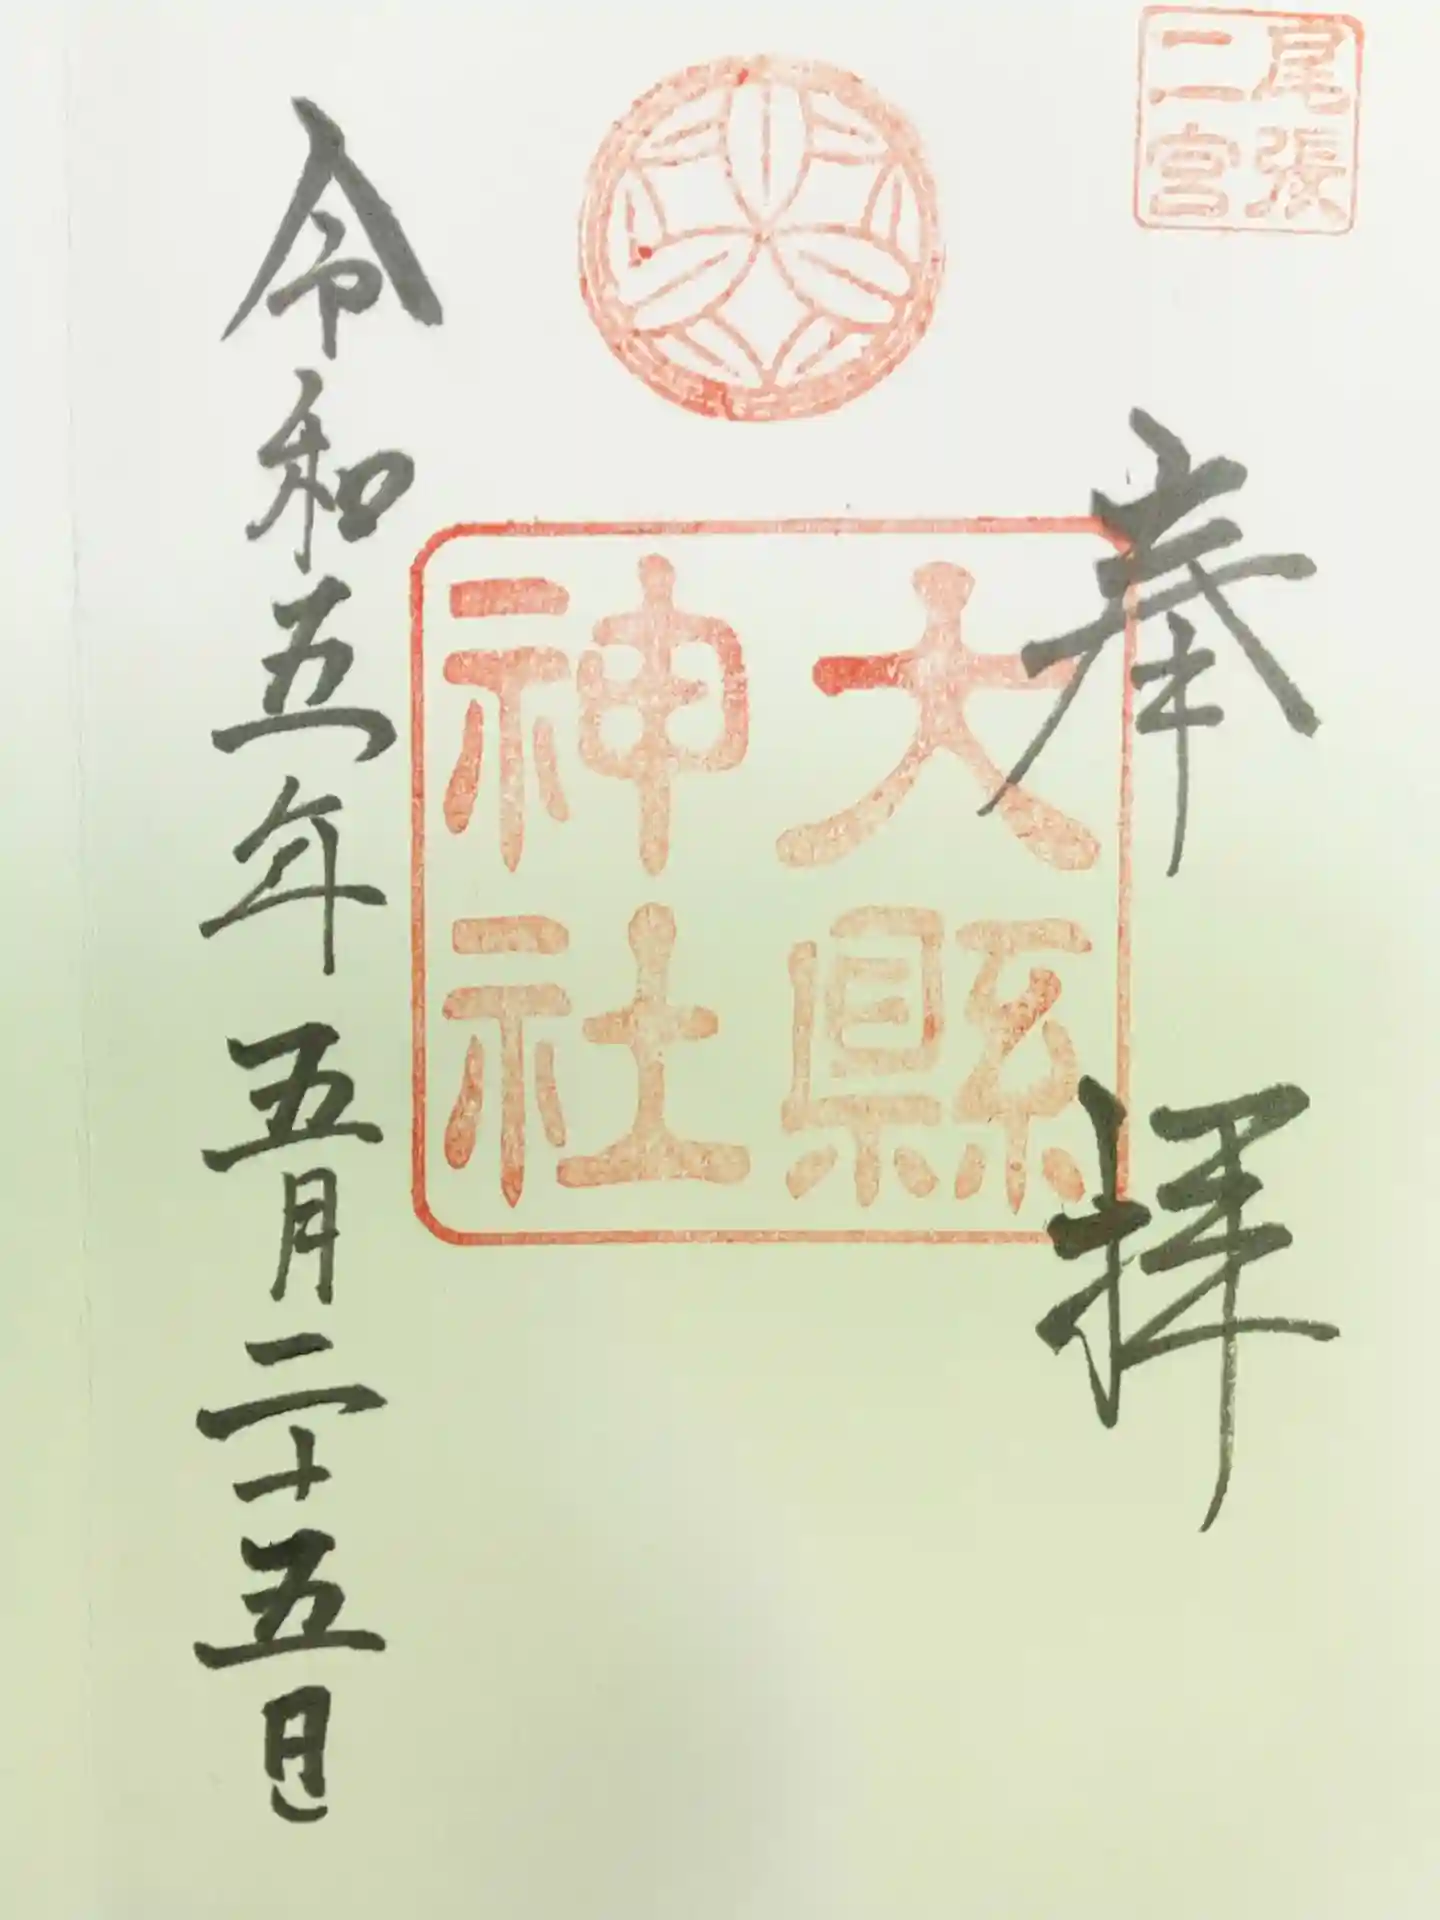 尾張
二宮
奉拝
大縣
神社
令和五年五月二十五日